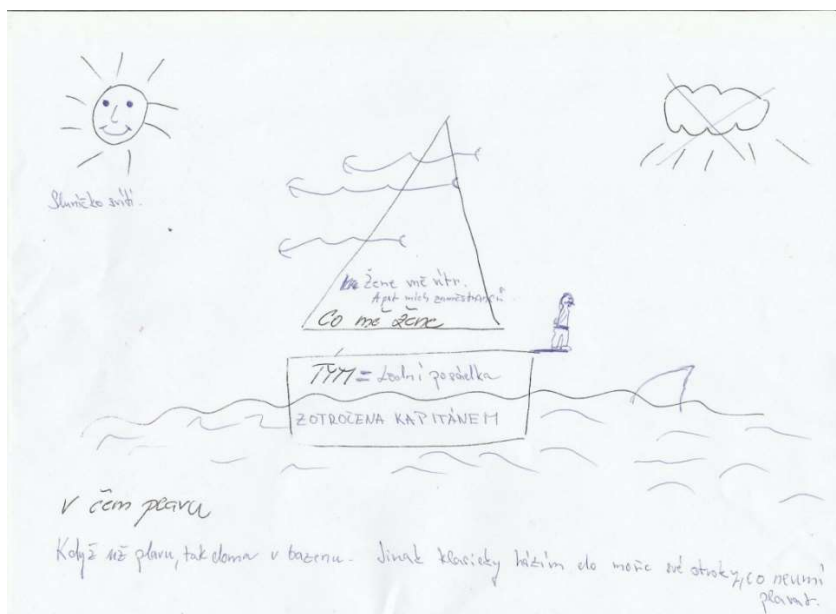 Sluníčko svítí.
Žene mě vítr.
A pot mých zaměstnanců.
Co mě žene
TÝM = Lodní posádka
ZOTROČENA KAPITÁNEM
V čem plavu
Když už plavu, tak doma v bazenu. Jinak klasicky házím do moře své otroky, co neumí
plavat.